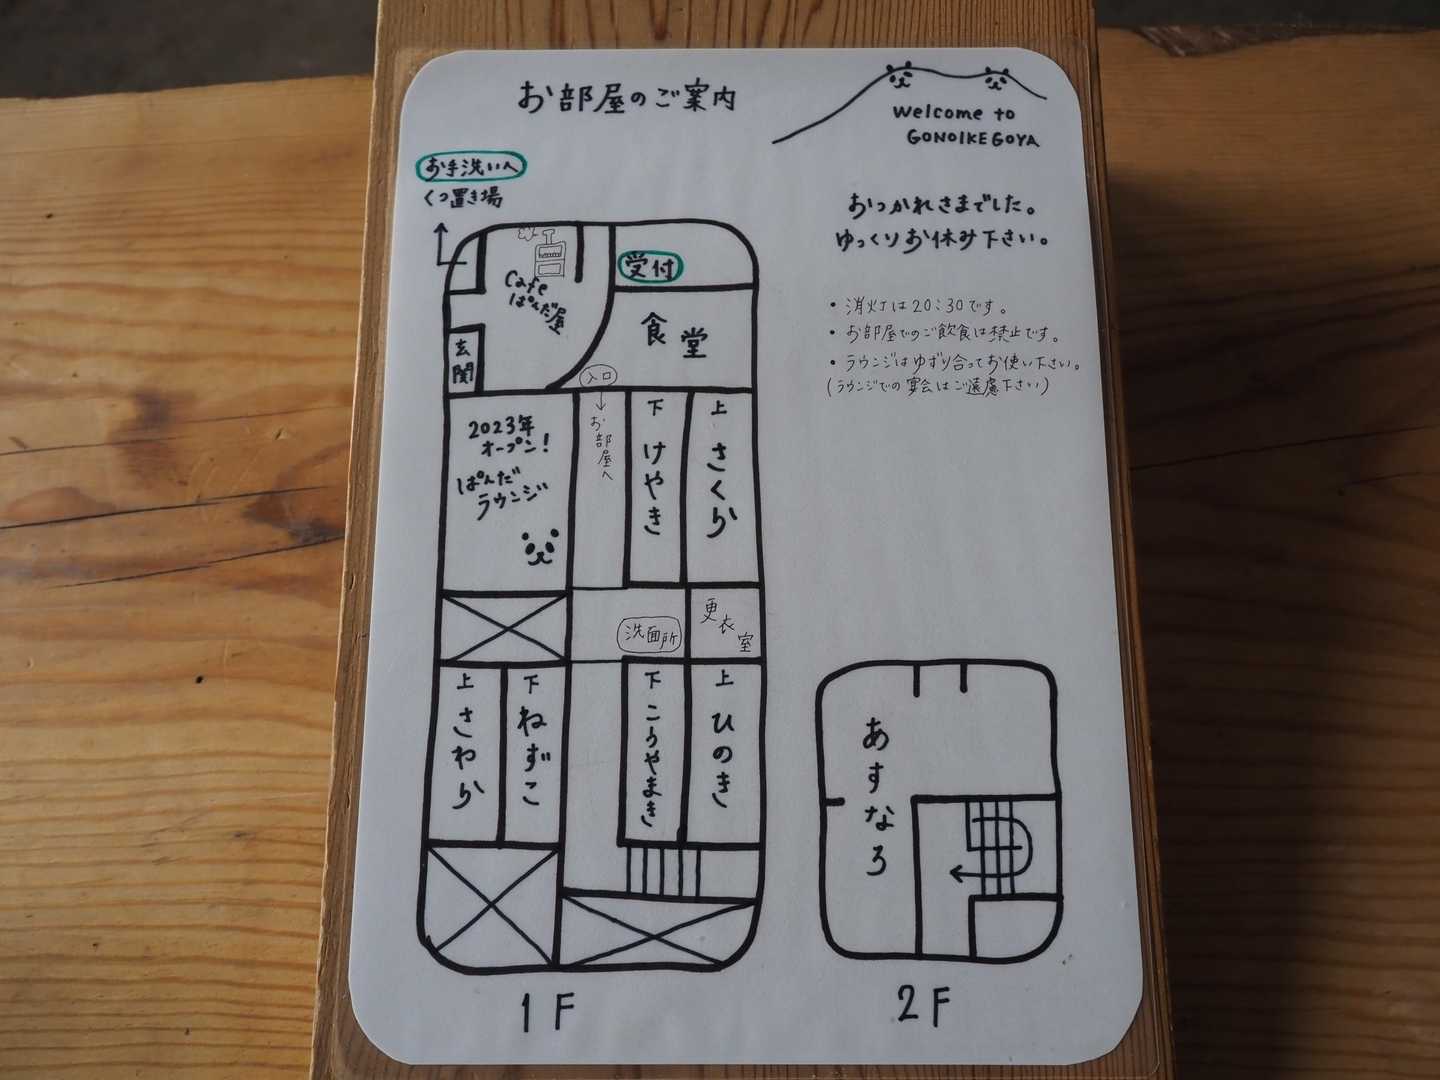 お部屋のご案内
Welcome to
GONOIKEGOYA
お手洗いへ
くつ置き場
おつかれさまでした。
ゆっくりお休み下さい。
・消灯は20:30です。
・お部屋でのご飲食は禁止です。
・ラウンジはゆずり合ってお使い下さい。
(ラウンジでの宴会はご遠慮下さい)
受付
Cafe
ぱんだ屋
食堂
玄関
入口
お部屋へ
2023年
オープン!
ぱんだ
ラウンジ
下 けやき
上 さくら
洗面所
更衣室
上 さわら
下 ねずこ
下 こうやまき
上 ひのき
あすなろ
1F
2F